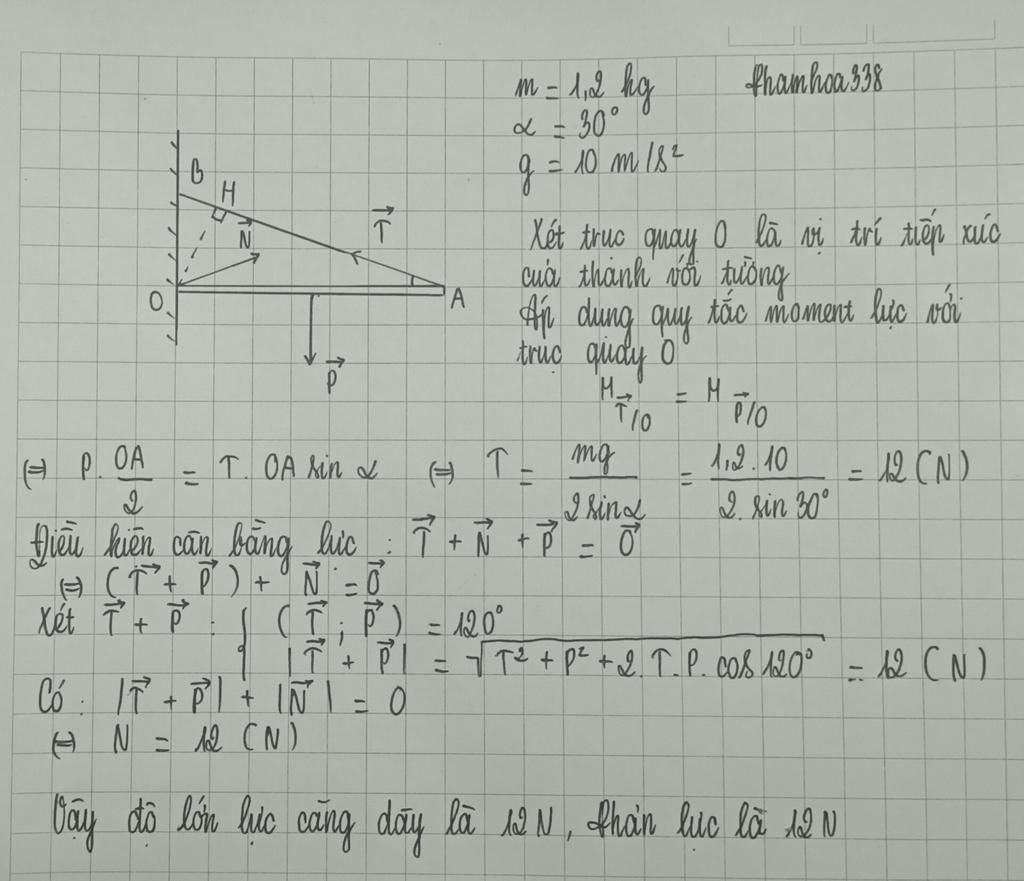 m = 1,2 kg phamhoa338
α = 30°
g = 10 m/s²
B
H
N⃗
T⃗
O
A
P⃗
Xét trục quay O là vị trí tiếp xúc
của thanh với tường
Áp dụng quy tắc moment lực với
trục quay O
M_{T⃗/O} = M_{P⃗/O}
(=) P. OA/2 = T. OA sin α (=) T = mg/(2 sin α) = (1,2 . 10)/(2. sin 30°) = 12 (N)
Điều kiện cân bằng lực : T⃗ + N⃗ + P⃗ = 0⃗
(=) (T⃗ + P⃗) + N⃗ = 0⃗
Xét T⃗ + P⃗ : { (T⃗ ; P⃗) = 120°
|T⃗ + P⃗| = √(T² + P² + 2.T.P.cos 120°) = 12 (N)
Có : |T⃗ + P⃗| + |N⃗| = 0
(=) N = 12 (N)
Vậy độ lớn lực căng dây là 12N, phản lực là 12N